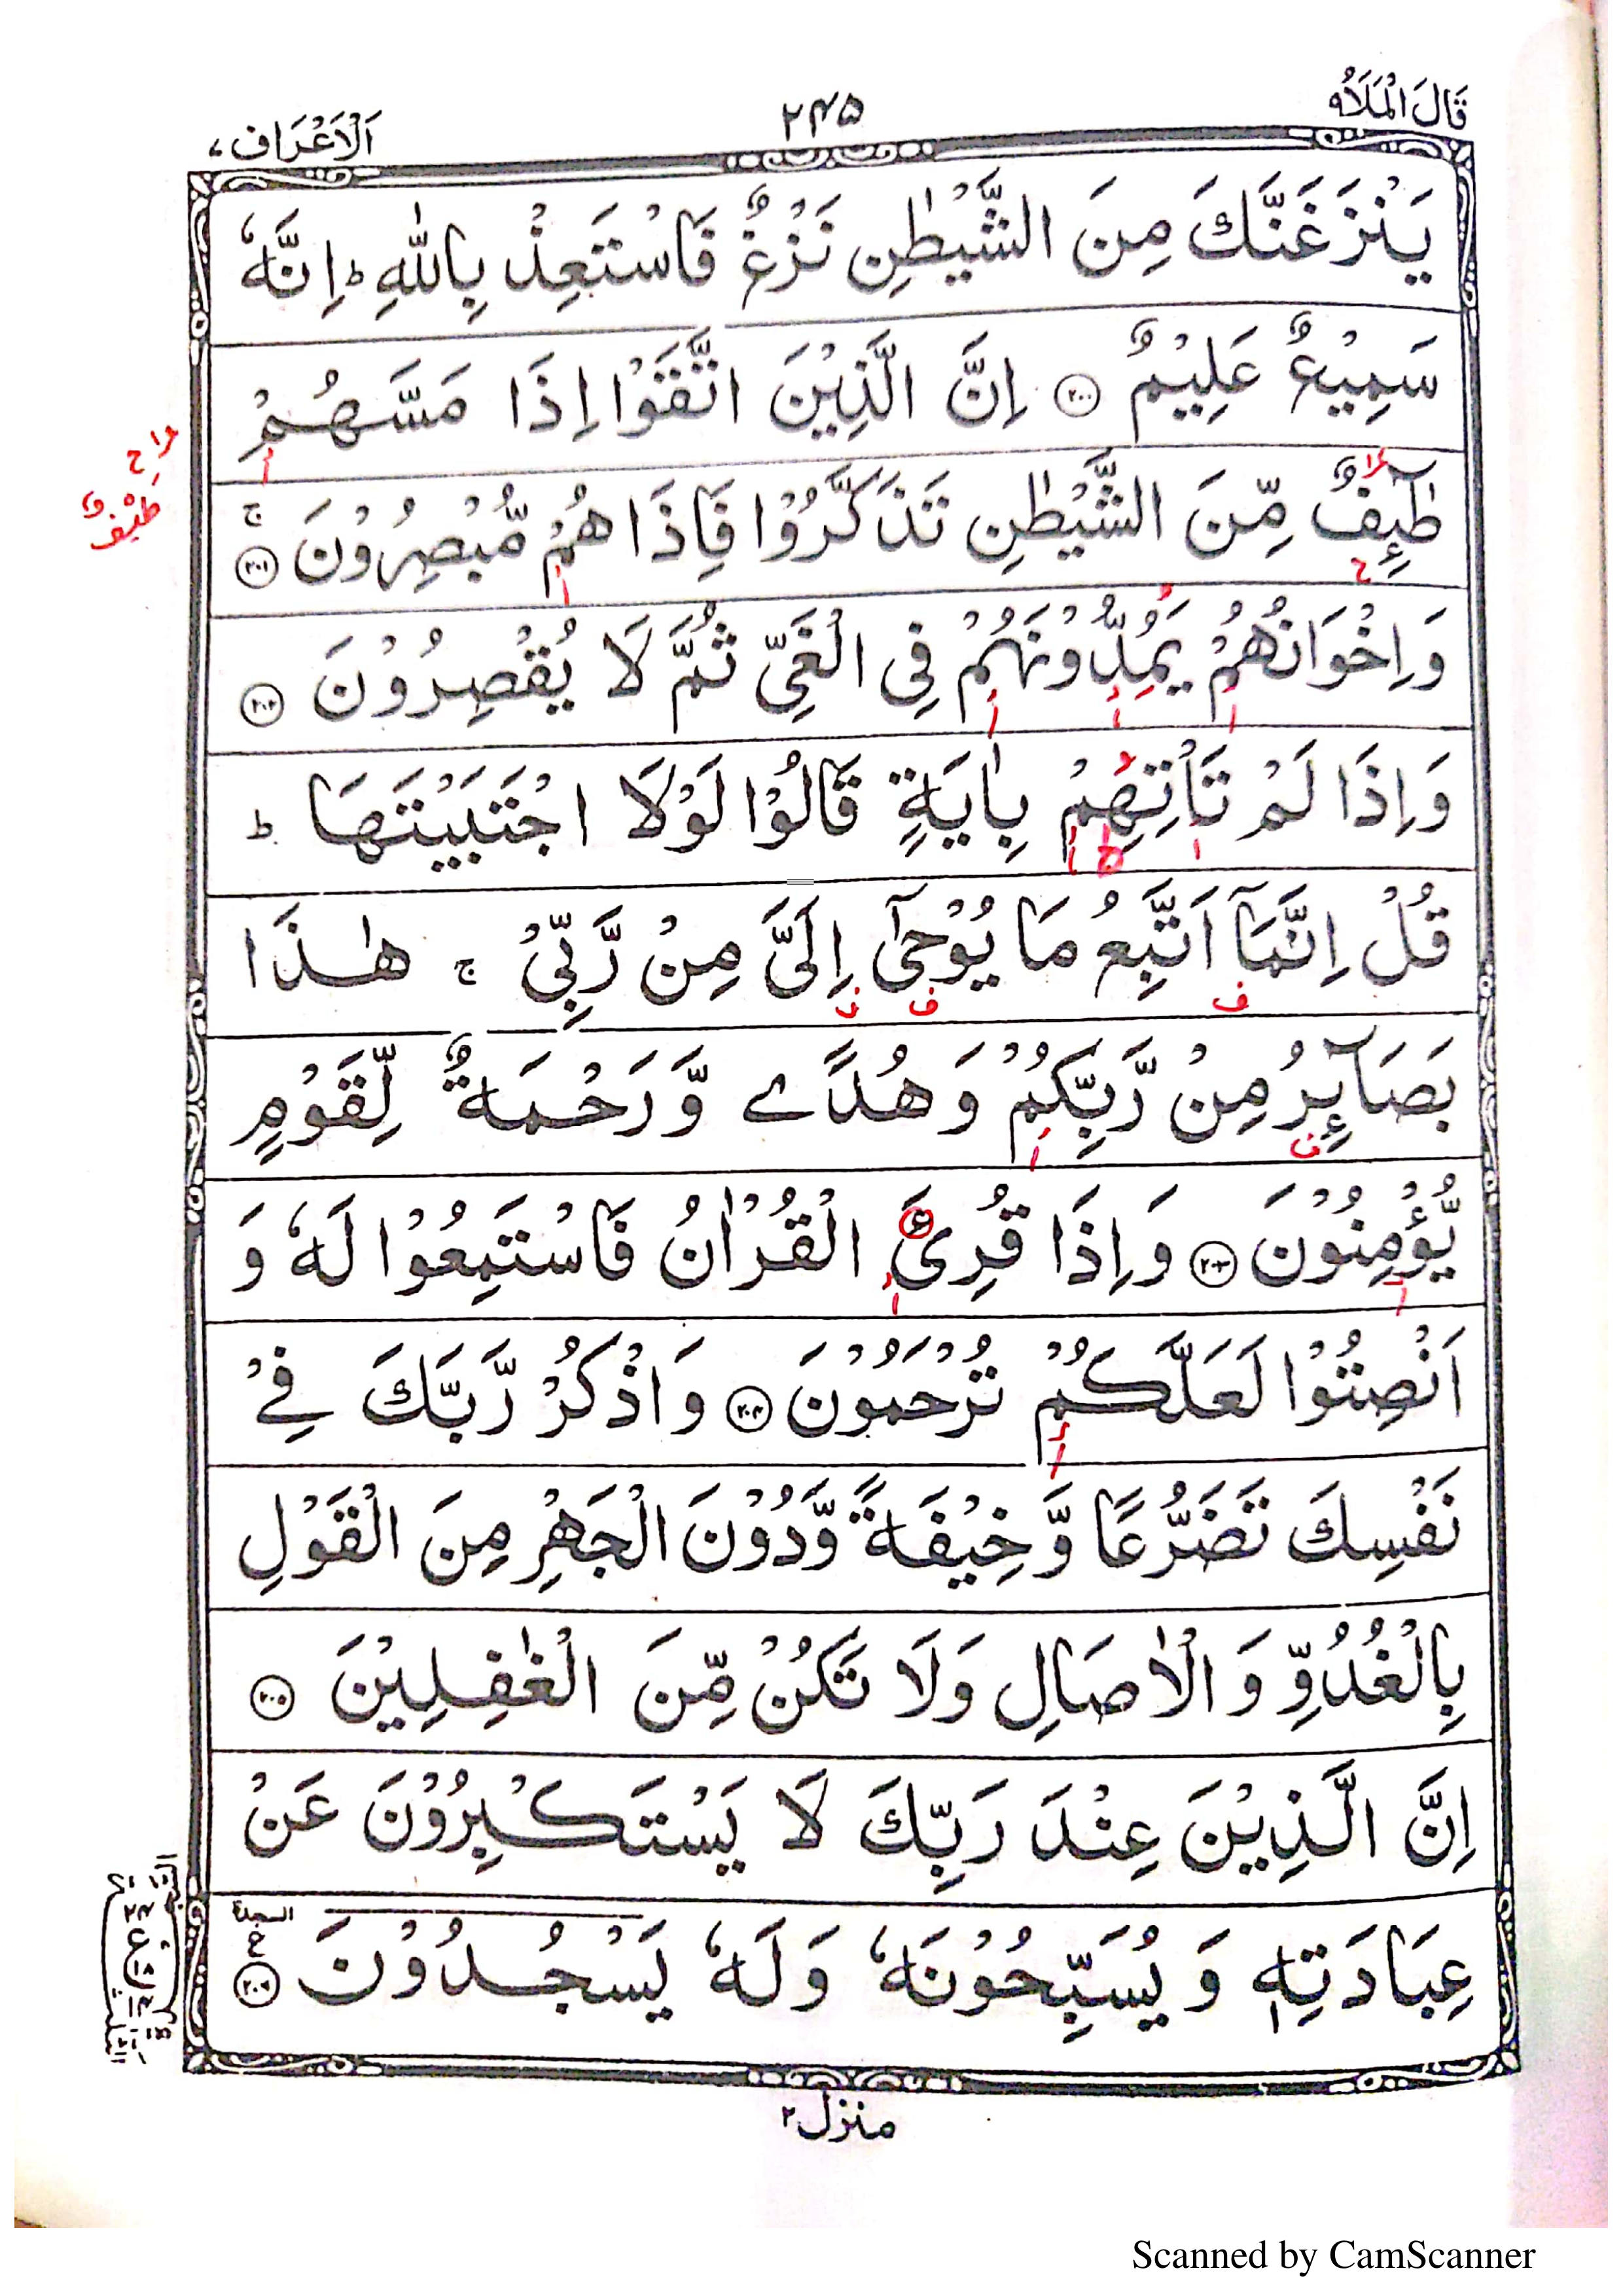 قَالَ الْمَلَاُ ٩
٢٤٥
اَلْاَعْرَاف ٧
يَنْزَغَنَّكَ مِنَ الشَّيْطٰنِ نَزْغٌ فَاسْتَعِذْ بِاللّٰهِ ؕ اِنَّهٗ
سَمِيْعٌ عَلِيْمٌ ﴿٢٠٠﴾ اِنَّ الَّذِيْنَ اتَّقَوْا اِذَا مَسَّهُمْ
طٰٓئِفٌ مِّنَ الشَّيْطٰنِ تَذَكَّرُوْا فَاِذَا هُمْ مُّبْصِرُوْنَ ۚ ﴿٢٠١﴾
طَيْفٌ
وَاِخْوَانُهُمْ يَمُدُّوْنَهُمْ فِى الْغَىِّ ثُمَّ لَا يُقْصِرُوْنَ ﴿٢٠٢﴾
وَاِذَا لَمْ تَاْتِهِمْ بِاٰيَةٍ قَالُوْا لَوْلَا اجْتَبَيْتَهَا ؕ
قُلْ اِنَّمَآ اَتَّبِعُ مَا يُوْحٰٓى اِلَىَّ مِنْ رَّبِّىْ ۚ هٰذَا
بَصَآئِرُ مِنْ رَّبِّكُمْ وَهُدًى وَّرَحْمَةٌ لِّقَوْمٍ
يُّؤْمِنُوْنَ ﴿٢٠٣﴾ وَاِذَا قُرِئَ الْقُرْاٰنُ فَاسْتَمِعُوْا لَهٗ وَ
اَنْصِتُوْا لَعَلَّكُمْ تُرْحَمُوْنَ ﴿٢٠٤﴾ وَاذْكُرْ رَّبَّكَ فِىْ
نَفْسِكَ تَضَرُّعًا وَّخِيْفَةً وَّدُوْنَ الْجَهْرِ مِنَ الْقَوْلِ
بِالْغُدُوِّ وَالْاٰصَالِ وَلَا تَكُنْ مِّنَ الْغٰفِلِيْنَ ﴿٢٠٥﴾
اِنَّ الَّذِيْنَ عِنْدَ رَبِّكَ لَا يَسْتَكْبِرُوْنَ عَنْ
عِبَادَتِهٖ وَيُسَبِّحُوْنَهٗ وَلَهٗ يَسْجُدُوْنَ ﴿٢٠٦﴾ السجدة
منزل ٢
Scanned by CamScanner